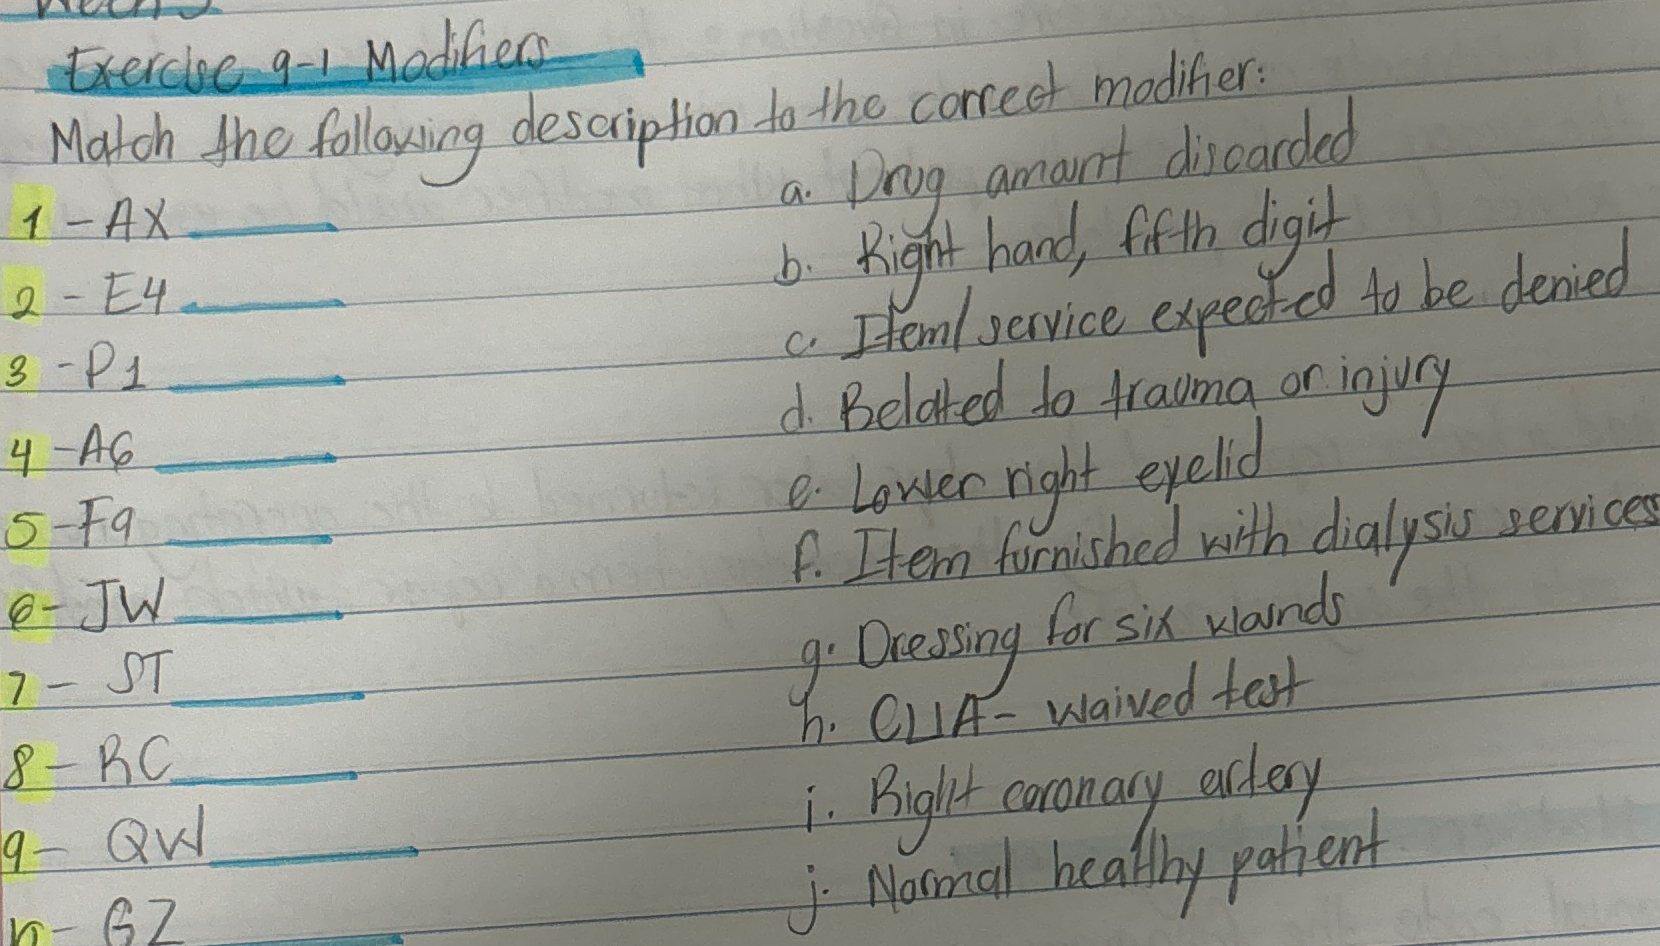 Exercise 9-1 Modifiers
Match the following description to the correct modifier:
1 - AX
2 - E4
3 - P1
4 - A6
5 - F9
6 - JW
7 - ST
8 - RC
9 - QW
10 - GZ
a. Drug amount discarded
b. Right hand, fifth digit
c. Item/service expected to be denied
d. Related to trauma or injury
e. Lower right eyelid
f. Item furnished with dialysis services
g. Dressing for six wounds
h. CLIA - waived test
i. Right coronary artery
j. Normal healthy patient